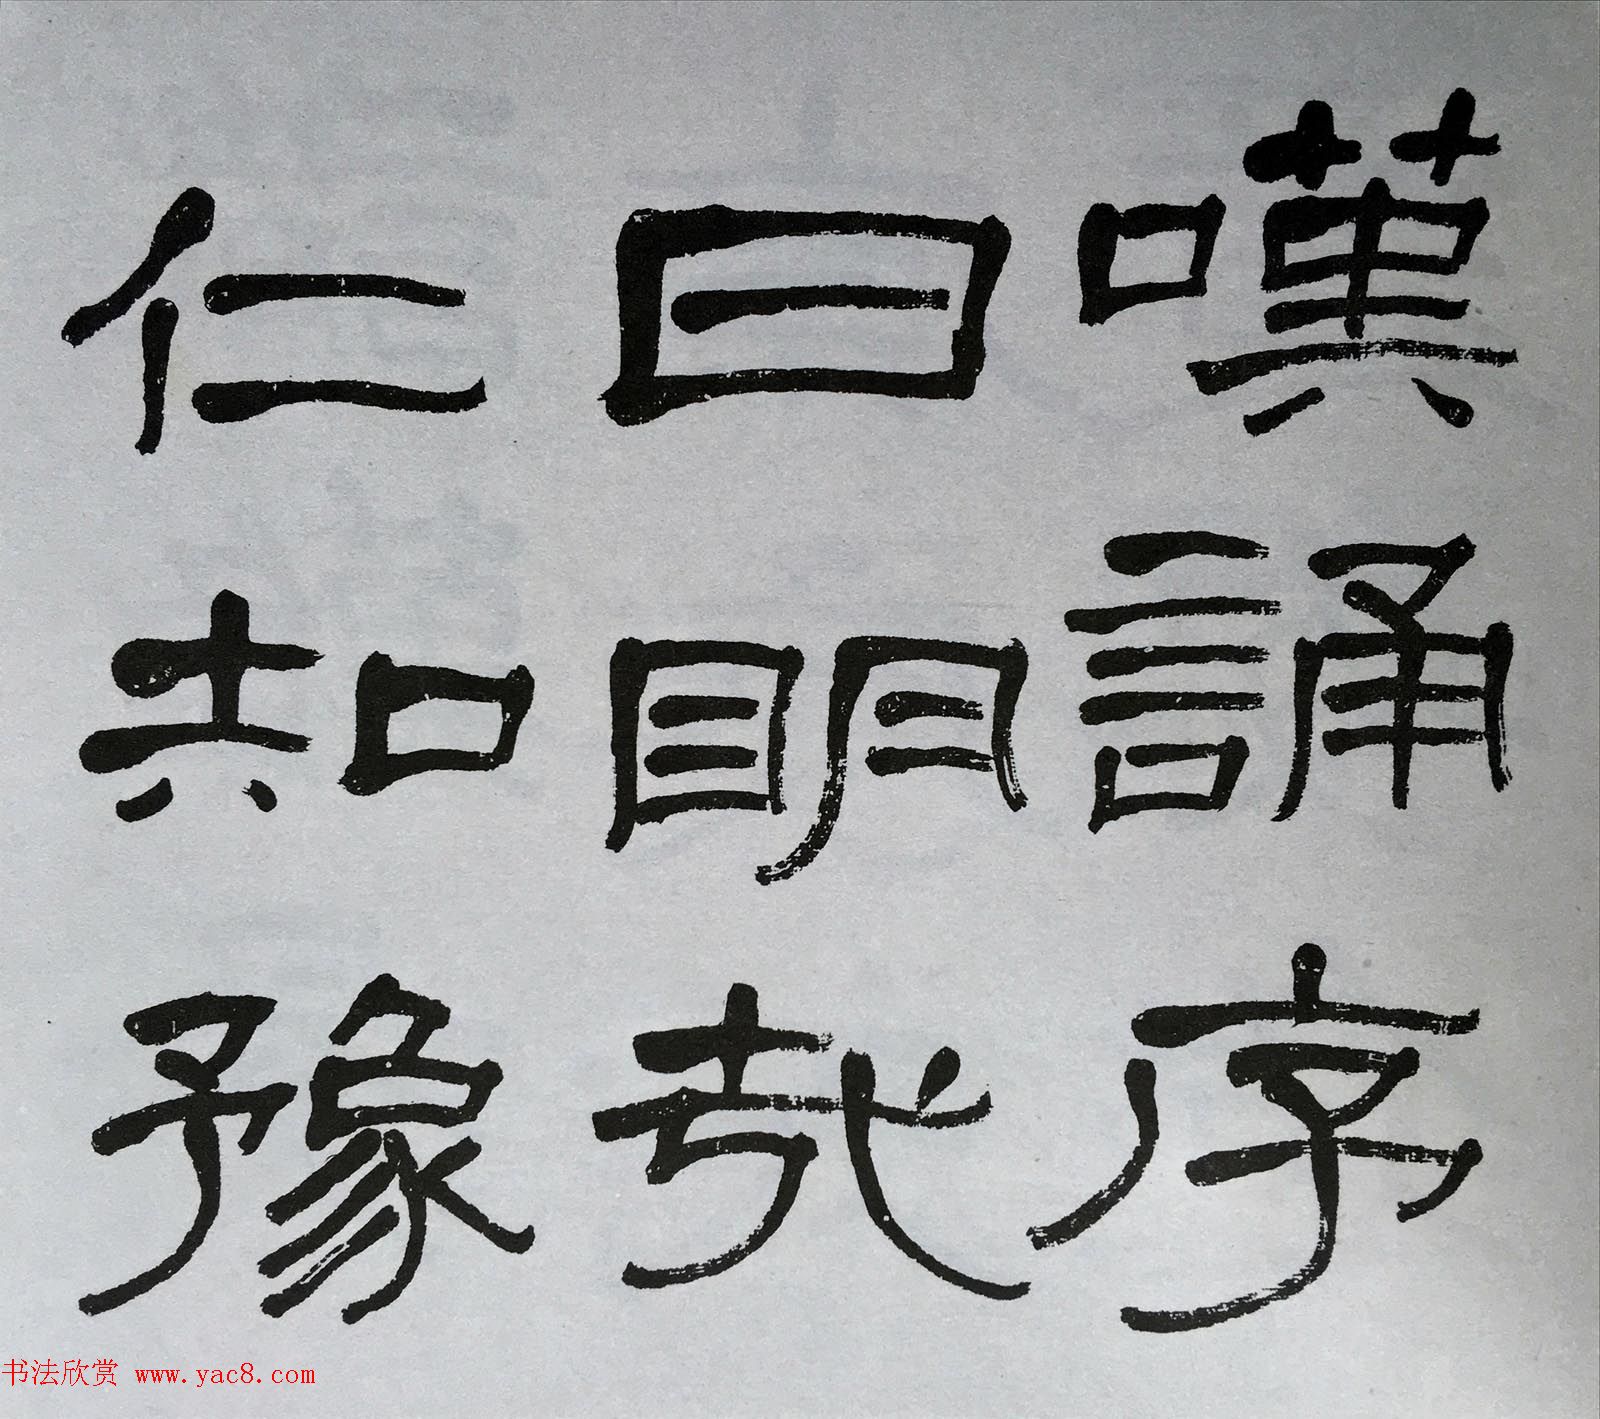 嘆誦序
曰明哉
仁知豫
书法欣赏 www.yac8.com